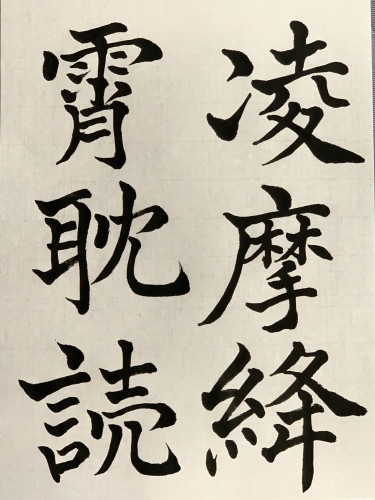 凌摩絳
霄耽読